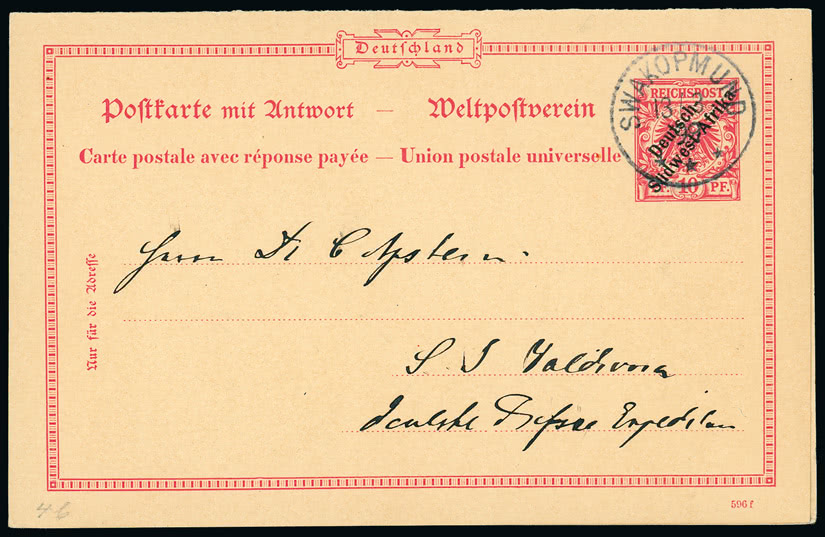 Deutschland
Postkarte mit Antwort — Weltpostverein
Carte postale avec réponse payée — Union postale universelle
REICHSPOST
Deutsch-
Südwest-Afrika
10 PF.
SWAKOPMUND
Nur für die Adresse
Herrn Dr C Apstein.
S. S Valdivia
Deutsche Tiefsee Expedition
4 6
596 f